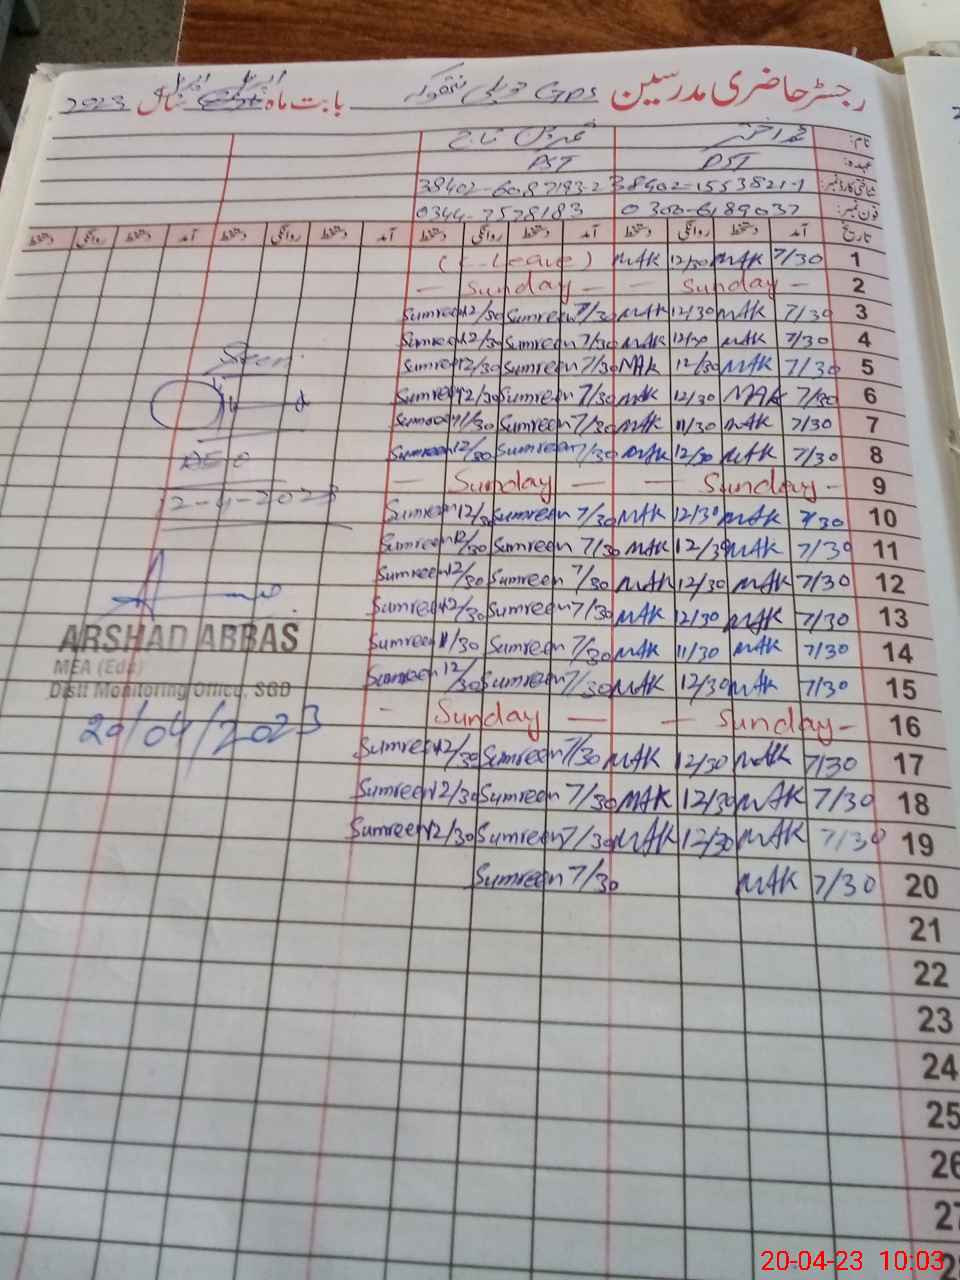 رجسٹر حاضری مدرسین GPS حویلی بابت ماہ اپریل سال 2023
نام:
عہدہ: PST PST
شناختی کارڈ نمبر: 38402-1553821-1 38402-6087193-2
فون نمبر: 0300-6189037 0344-7578183
تاریخ آمد دستخط روانگی دستخط آمد دستخط روانگی دستخط آمد دستخط روانگی دستخط
1 7/30 MAK 12/30 MAK (C-Leave)
2 - Sunday - - Sunday -
3 7/30 MAK 12/30 MAK 7/30 Sumreen 12/30 Sumreen
4 7/30 MAK 12/30 MAK 7/30 Sumreen 12/30 Sumreen
5 7/30 MAK 12/30 MAK 7/30 Sumreen 12/30 Sumreen
6 7/30 MAK 12/30 MAK 7/30 Sumreen 12/30 Sumreen
7 7/30 MAK 11/30 MAK 7/30 Sumreen 11/30 Sumreen
8 7/30 MAK 12/30 MAK 7/30 Sumreen 12/30 Sumreen
9 - Sunday - - Sunday -
10 7/30 MAK 12/30 MAK 7/30 Sumreen 12/30 Sumreen
11 7/30 MAK 12/30 MAK 7/30 Sumreen 12/30 Sumreen
12 7/30 MAK 12/30 MAK 7/30 Sumreen 12/30 Sumreen
13 7/30 MAK 12/30 MAK 7/30 Sumreen 12/30 Sumreen
14 7/30 MAK 11/30 MAK 7/30 Sumreen 11/30 Sumreen
15 7/30 MAK 12/30 MAK 7/30 Sumreen 12/30 Sumreen
16 - Sunday - - Sunday -
17 7/30 MAK 12/30 MAK 7/30 Sumreen 12/30 Sumreen
18 7/30 MAK 12/30 MAK 7/30 Sumreen 12/30 Sumreen
19 7/30 MAK 12/30 MAK 7/30 Sumreen 12/30 Sumreen
20 7/30 MAK 7/30 Sumreen
21
22
23
24
25
26
27
Seen
AEO
12-4-2023
ARSHAD ABBAS
MEA (Edu)
Distt Monitoring Office, SGD
20/04/2023
20-04-23 10:03